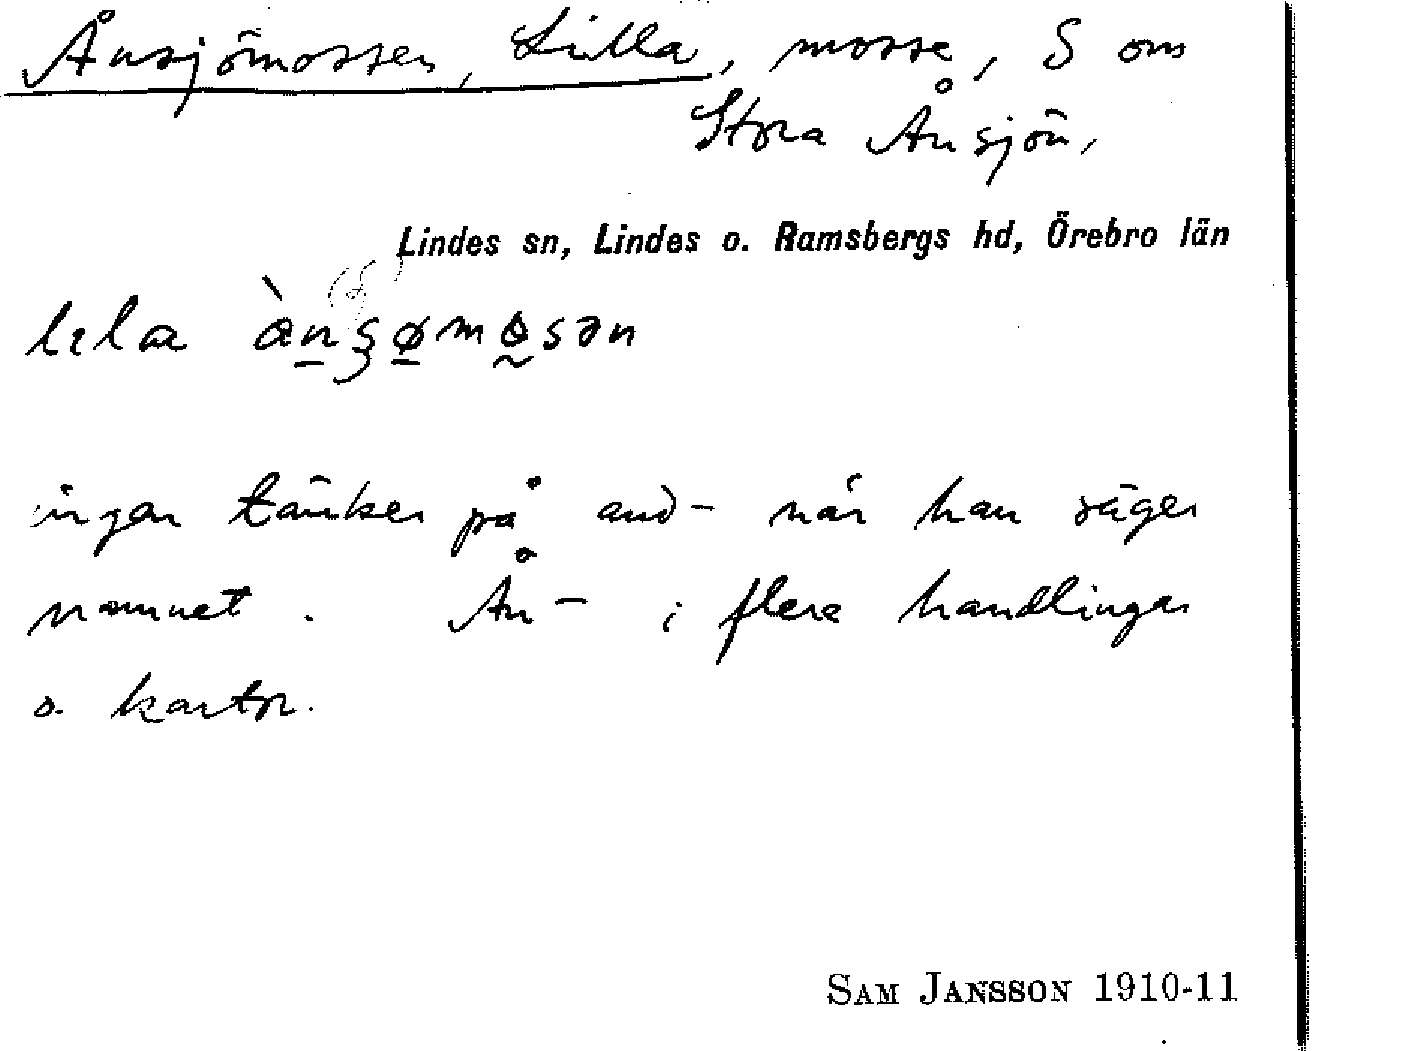 Ånsjömossen, Lilla, mosse, S om
Stora Ånsjön,
Lindes sn, Lindes o. Ramsbergs hd, Örebro län
lɩla
ingen tänker på and- när han säger
namnet. Ån- i flere handlingar
o. kartor.
SAM JANSSON 1910-11